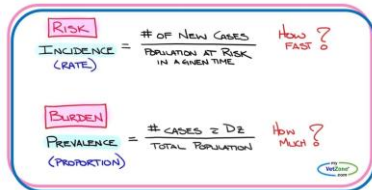 RISK
INCIDENCE = # OF NEW CASES
(RATE) POPULATION AT RISK
IN A GIVEN TIME
HOW FAST?
BURDEN
PREVALENCE = # CASES c̄ DZ
(PROPORTION) TOTAL POPULATION
HOW MUCH?
my
VetZone
.com